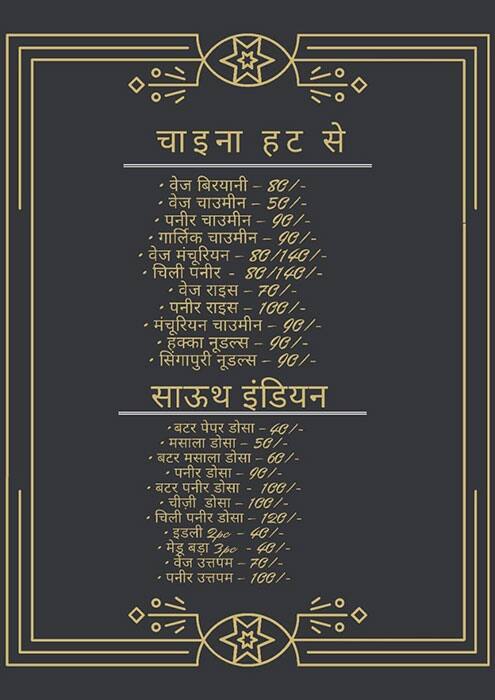 चाइना हट से
• वेज बिरयानी – 80/-
• वेज चाउमीन – 50/-
• पनीर चाउमीन – 90/-
• गार्लिक चाउमीन – 90/-
• वेज मंचूरियन – 80/140/-
• चिली पनीर - 80/140/-
• वेज राइस – 70/-
• पनीर राइस – 100/-
• मंचूरियन चाउमीन – 90/-
• हक्का नूडल्स – 90/-
• सिंगापुरी नूडल्स – 90/-
साऊथ इंडियन
• बटर पेपर डोसा – 40/-
• मसाला डोसा – 50/-
• बटर मसाला डोसा – 60/-
• पनीर डोसा – 90/-
• बटर पनीर डोसा - 100/-
• चीज़ी डोसा – 100/-
• चिली पनीर डोसा – 120/-
• इडली 2pc – 40/-
• मेडू बड़ा 3pc - 40/-
• वेज उत्तपम – 70/-
• पनीर उत्तपम – 100/-